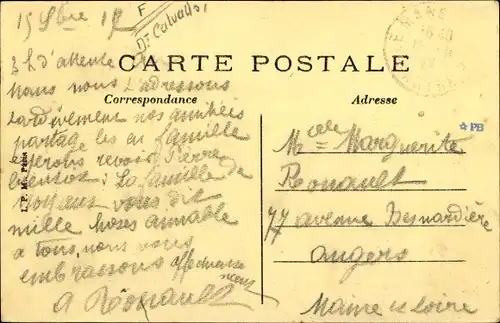 15 9bre 17
F
Dt Calvados
CARTE POSTALE
Correspondance
Adresse
2h d'attente
nous nous l'adressons
tardivement nos amitiés
partagées en famille
espérons revoir Pierre
bientôt. La famille de
vous dit
mille choses aimable
a tous, nous vous
embrassons affectueuse
ment
A Rouault
Melle Marguerite
Rouault
77 avenue Besnardière
Angers
Maine et Loire
PB